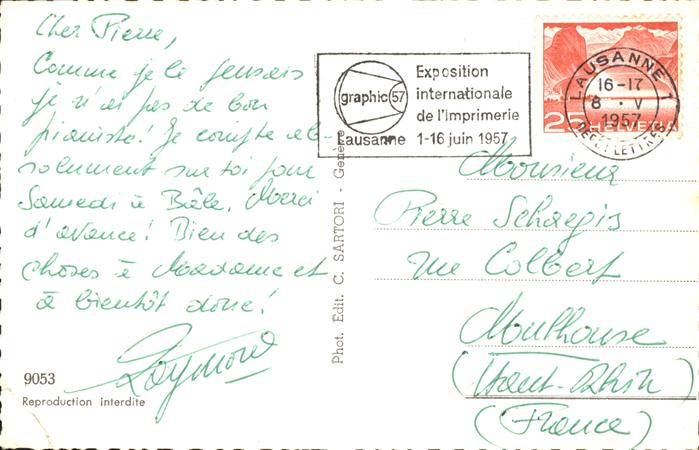 Cher Pierre,
Comme je le pensais
je n'ai pas de bon
pianiste! Je compte ab-
solument sur toi pour
Samedi à Bâle. Merci
d'avance! Bien des
choses à Madame et
à bientôt donc!
Raymond
9053
Reproduction interdite
Phot. Edit. C. SARTORI - Genève
graphic 57
Lausanne
Exposition
internationale
de l'imprimerie
1-16 juin 1957
LAUSANNE 1
16-17
8 · V
1957
25 HELVETIA
Monsieur
Pierre
rue Colbert
Moulhouse
(Haut-Rhin)
(France)